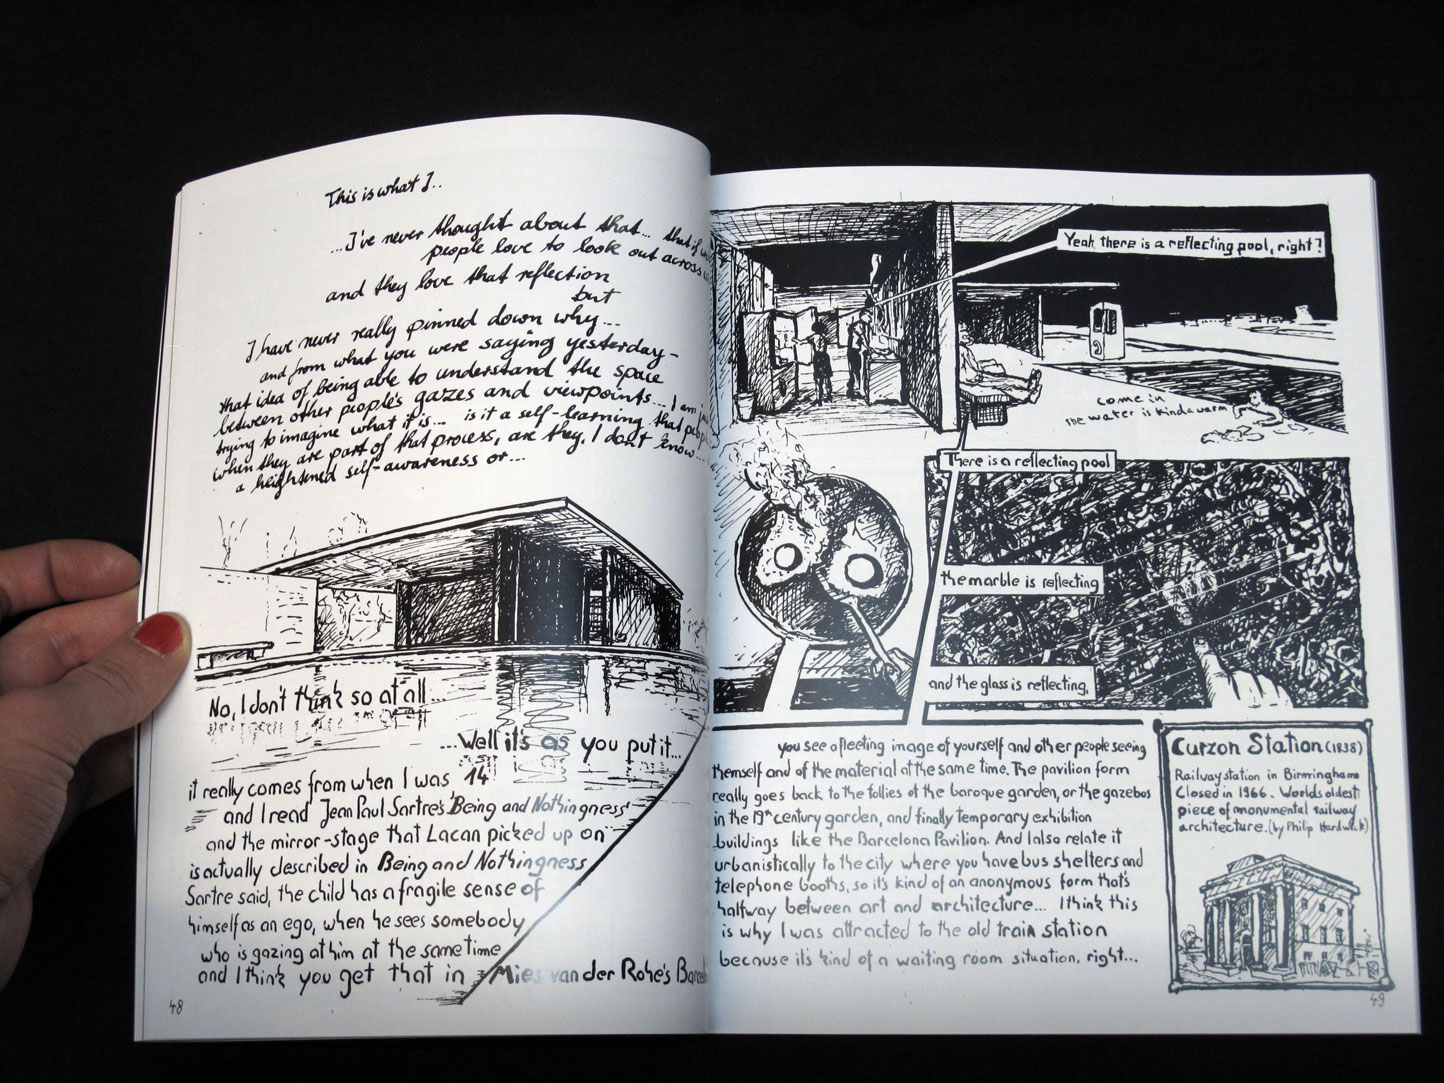 This is what I..
...I've never thought about that... that if
people love to look out across
and they love that reflection
but
I have never really pinned down why...
and from what you were saying yesterday-
that idea of being able to understand the space
between other people's gazes and viewpoints... I am
trying to imagine what it is... is it a self-learning that
when they are part of that process, are they, I don't know...
a heightened self-awareness or...
No, I don't think so at all...
...Well it's as you put it...
it really comes from when I was 14
and I read Jean Paul Sartre's 'Being and Nothingness'
and the mirror-stage that Lacan picked up on
is actually described in Being and Nothingness
Sartre said, the child has a fragile sense of
himself as an ego, when he sees somebody
who is gazing at him at the same time
and I think you get that in Mies van der Rohe's
48
Yeah, there is a reflecting pool, right?
come in
the water is kinda warm
There is a reflecting pool
the marble is reflecting
and the glass is reflecting,
you see a fleeting image of yourself and other people seeing
themself and of the material at the same time. The pavilion form
really goes back to the follies of the baroque garden, or the gazebos
in the 19th century garden, and finally temporary exhibition
buildings like the Barcelona Pavilion. And I also relate it
urbanistically to the city where you have bus shelters and
telephone booths, so it's kind of an anonymous form that's
halfway between art and architecture... I think this
is why I was attracted to the old train station
because it's kind of a waiting room situation, right...
Curzon Station (1838)
Railway station in Birmingham
Closed in 1966. Worlds oldest
piece of monumental railway
architecture. (by Philip Hardwick)
49